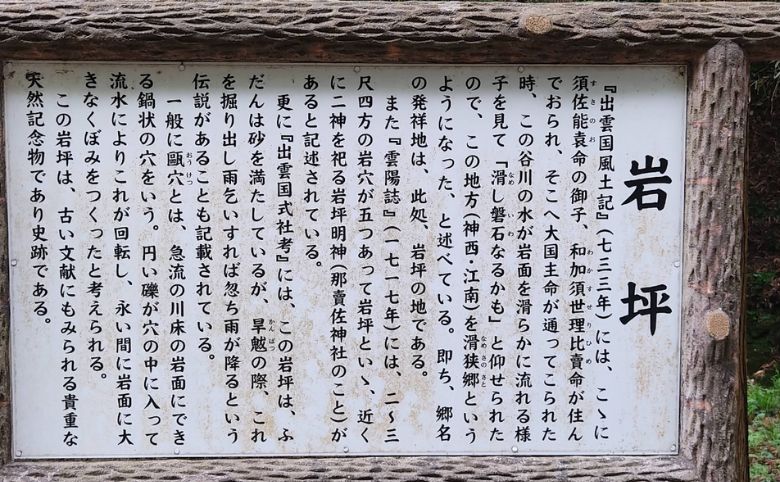 岩坪
『出雲国風土記』(七三三年)には、こゝに
須佐能袁命の御子、和加須世理比賣命が住ん
でおられ、そこへ大国主命が通ってこられた
時、この谷川の水が岩面を滑らかに流れる様
子を見て「滑し磐石なるかも」と仰せられた
ので、この地方(神西・江南)を滑狭郷という
ようになった、と述べている。即ち、郷名
の発祥地は、此処、岩坪の地である。
また『雲陽誌』(一七一七年)には、二〜三
尺四方の岩穴が五つあって岩坪といゝ、近く
に二神を祀る岩坪明神(那賣佐神社のこと)が
あると記述されている。
更に『出雲国式社考』には、この岩坪は、ふ
だんは砂を満たしているが、旱魃の際、これ
を掘り出し雨乞いすれば忽ち雨が降るという
伝説があることも記載されている。
一般に甌穴とは、急流の川床の岩面にでき
る鍋状の穴をいう。円い礫が穴の中に入って
流水によりこれが回転し、永い間に岩面に大
きなくぼみをつくったと考えられる。
この岩坪は、古い文献にもみられる貴重な
天然記念物であり史跡である。